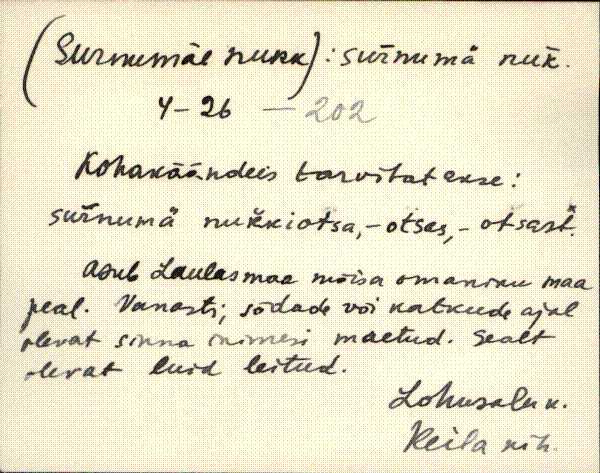 (Surnumäe nukk): surnumä nuk.
4-26 — 202
Kohakäändeis tarvitatakse:
surnumä nukkiotsa, -otsas, -otsast.
Asub Laulasmaa mõisa omaniku maa
peal. Vanasti, sõdade või katkude ajal
olevat sinna inimesi maetud. Sealt
olevat luid leitud.
Lohusalu k.
Keila khk.